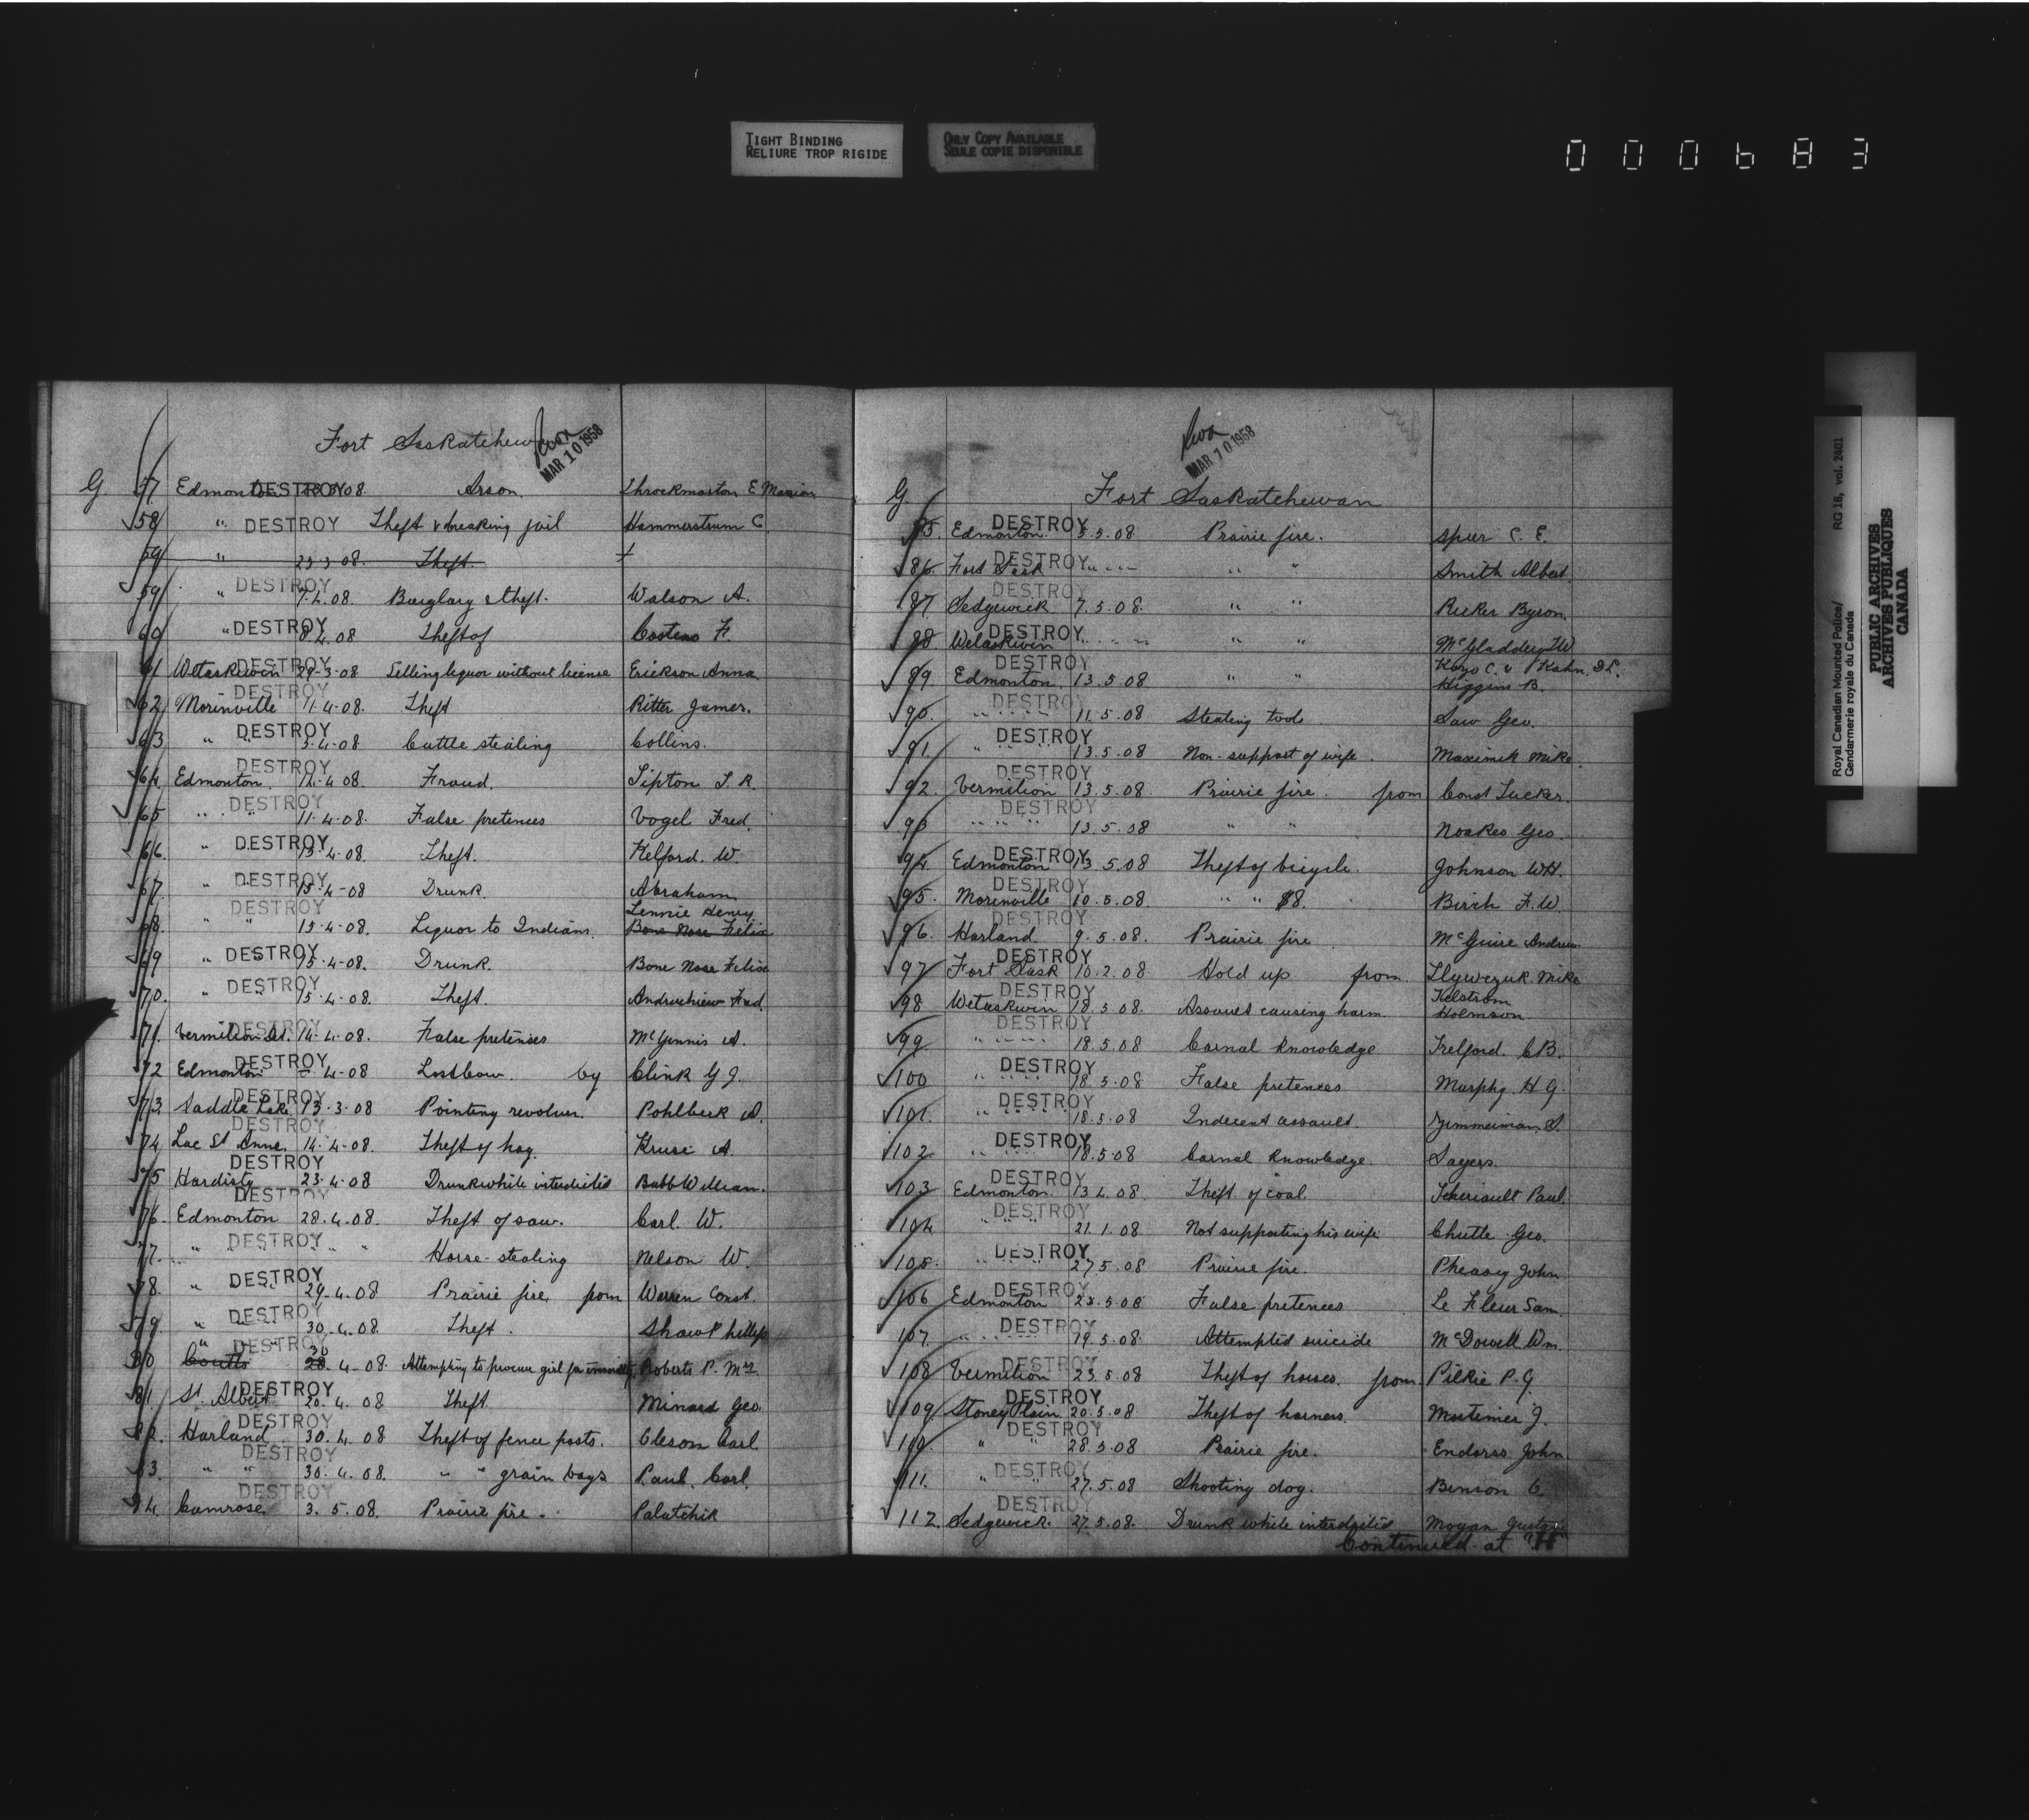 TIGHT BINDING
RELIURE TROP RIGIDE
ONLY COPY AVAILABLE
SEULE COPIE DISPONIBLE
000683
Fort Saskatchewan
MAR 10 1958
G. 57 Edmonton DESTROY 08. Arson. Throckmorton E Marion
58 " DESTROY Theft & breaking jail Hammerstrum C
59 " 23 3 08. Theft.
59 " DESTROY 7.4.08. Burglary & theft. Watson A.
60 " DESTROY 8.4.08 Theft of F.
61 Wetaskiwin DESTROY 29-3-08 Selling liquor without license Erickson Anna
62 Morinville DESTROY 11.4.08. Theft Ritter James.
63 " " DESTROY 3-4-08 Cattle stealing Collins.
64 Edmonton. DESTROY 14-4-08. Fraud. Tipton T. R.
65 " " DESTROY 11.4.08. False pretences Vogel Fred.
66. " DESTROY 13.4-08. Theft. Kelford. W.
67. " " DESTROY 15.4-08 Drunk. Abraham
68. " " DESTROY 15-4-08. Liquor to Indians. Lennie Henry. Bone Nose Felix
69 " DESTROY 15-4-08. Drunk. Bone Nose Felix
70. " " DESTROY 15.4.08. Theft. Fred
71. Vermilion St. DESTROY 14-4-08. False pretenses McGinnis A.
72 Edmonton DESTROY -4-08 Lost cow. by Clink G J.
73 Saddle Lake DESTROY 13-3-08 Pointing revolver. Pohlbeck A.
74 Lac St Anne. DESTROY 14.4-08. Theft of hog. Kruse A.
75 Hardisty DESTROY 23.4.08 Drunk while interdicted Bubb William.
76. Edmonton DESTROY 28.4.08. Theft of saw. Carl. W.
77. " " DESTROY " " Horse-stealing Nelson W.
78. " " DESTROY 29-4-08 Prairie fire from Warren Const.
79. " " DESTROY 30-4-08. Theft. Shaw Phillip
80 " " Coutts DESTROY 30 28.4-08. Attempting to procure girl for immorality Roberts P. Mrs.
81. St. Albert DESTROY 20.4.08 Theft. Minard Geo.
82. Harland DESTROY 30.4.08 Theft of fence posts. Oleson Carl
83. " " DESTROY 30.4.08. " " grain bags Paul Carl.
84. Camrose DESTROY 3.5.08. Prairie fire. Palutchik
MAR 10 1958
G. Fort Saskatchewan
85. Edmonton. DESTROY 5.5.08 Prairie fire. Spier C. E.
86. Fort Sask DESTROY " " Smith Albert.
87. Sedgewick DESTROY 7.5.08. " " Byron.
88 Wetaskiwin DESTROY " " McGladdery
89. Edmonton. DESTROY 13.5.08 " " C. v Kahn Higgins B.
90. DESTROY 11.5.08 Stealing tools Saw Geo.
91. DESTROY 13.5.08 Non-support of wife. Maximik Mike.
92. Vermilion DESTROY 13.5.08 Prairie fire. from Const Tucker.
93 DESTROY 13.5.08 " " Noakes Geo.
94. Edmonton DESTROY 13.5.08 Theft of bicycle. Johnson WH.
95. Morinville DESTROY 10.5.08. " " $8. Birch F. W.
96. Harland DESTROY 9.5.08. Prairie fire McGuire Andrew
97 Fort Sask DESTROY 10.2.08 Hold up from Mike
98 Wetaskiwin DESTROY 18.5.08. Assault causing harm. Kelstrom Holmson
99 DESTROY 18.5.08 Carnal knowledge Trelford. C B.
100 DESTROY 18.5.08 False pretences Murphy. H G.
101. DESTROY 18.5.08 Indecent assault. Zimmerman S.
102 DESTROY 18.5.08 Carnal knowledge. Sayers.
103 Edmonton DESTROY 13 4.08. Theft of coal. Theriault Paul.
104 DESTROY 21.1.08. Not supporting his wife Chutte Geo.
105. DESTROY 27.5.08 Prairie fire. Pheasey John.
106 Edmonton DESTROY 23.5.08 False pretences Le Fleur Sam
107. DESTROY 19.5.08. Attempted suicide McDowell Wm.
108 Vermilion DESTROY 23.5.08 Theft of horses. from Pilkie P. G.
109 Stoney Plain DESTROY 20.5.08 Theft of harness. Mortimer J.
110. " " DESTROY 28.5.08 Prairie fire. Endorss John
111. " " DESTROY 27.5.08 Shooting dog. Benson C.
112. Sedgewick. DESTROY 27.5.08. Drunk while interdicted Moyan
Continued at "H"
Royal Canadian Mounted Police/ RG 18, vol. 2401
Gendarmerie royale du Canada
PUBLIC ARCHIVES
ARCHIVES PUBLIQUES
CANADA